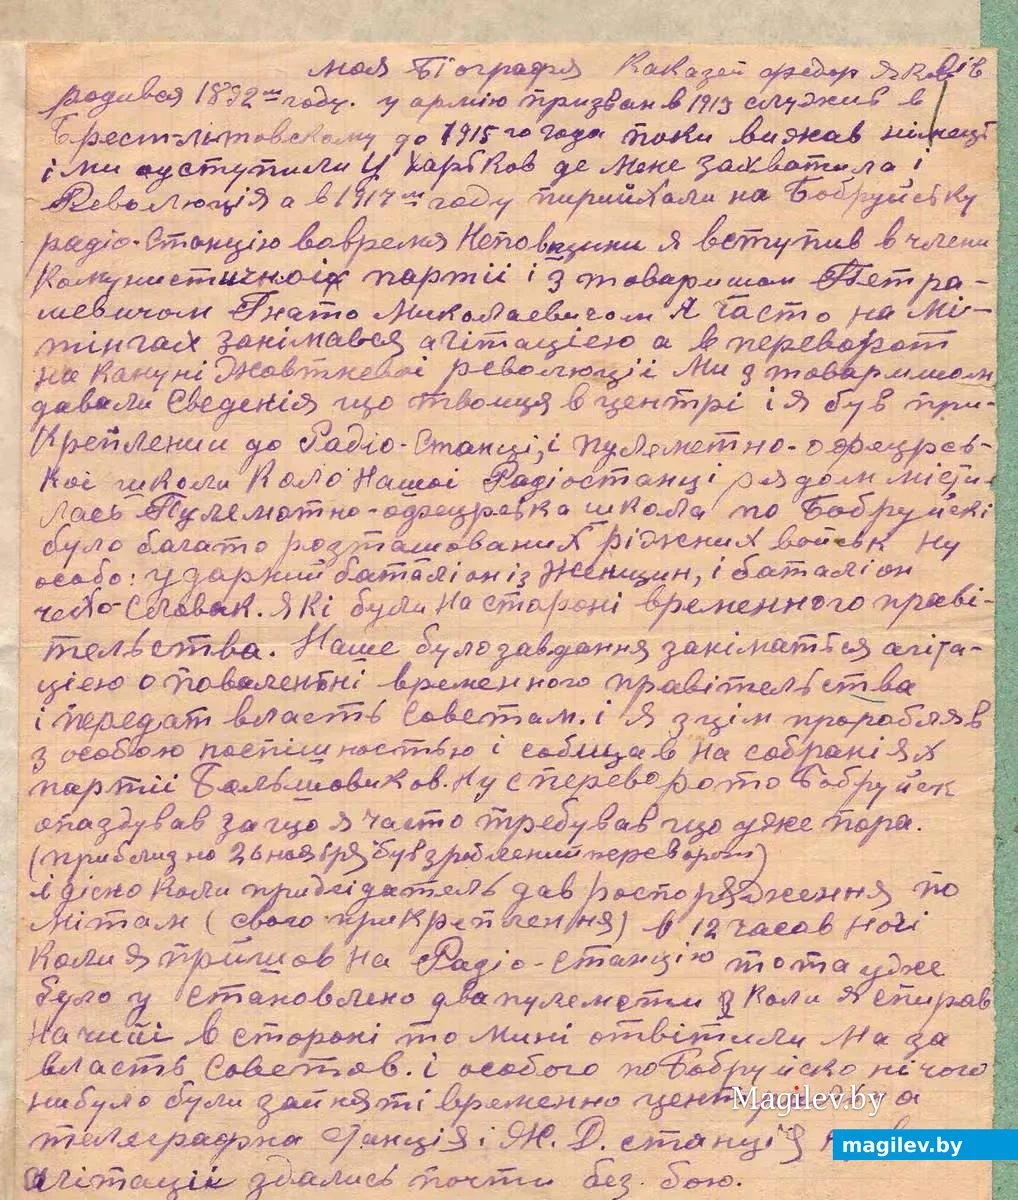 моя Біографія Каказей федор Яковів
родився 1892 году. у армію призван в 1913 служив в
Брест-літовскому до 1915 го года поки вижав німець
і ми оуступили у харьков де мене захватила і
Революція а в 1917 м году пирийхали на Бобруйську
радіо-станцію вовремя Неповщини я вступив в члени
Комунистичноія партіі і з товаришом Петра-
шевичом Гнато Миколаевичом Я часто на Мі-
тінгах занімався агітаціею а в переворот
на кануні Жовтневоі революціі Ми з товаришом
давали Сведенія що твоиця в центрі і я був при-
креплении до Радіо-Станці, і пулеметно-офецрсь-
коі школи Коло Нашоі Радіостанці рядом місти-
лась Пулемотно-офецрська школа по Бобруйскі
було багато розташованих ріжних войськ ну
особо: ударний баталіон із Женщин, і баталіон
чехо-словак. які були на стороні временного праві-
тельства. Наше було завдання заніматься агіта-
ціею о повалентні временного правітельства
і передат власть Советам. і я з цім проробляв
з особою поспішностью і собщав на собраніях
партіі Большовиков. Ну с переворото Бобруйск
опаздував за що я часто требував що уже пора.
(приблизно 26 ноября був зроблений переворот)
і дісно коли придсідатель дав роспорядження по
мітам (свого прикрепчення) в 12 часов ночі
Коли я прийшов на Радіо-станцію то та уже
було у становлено два пулемети з коли я спирав
На чиіі в стороні то мині отвітили Ма за
власть Советов. і особого по Бобруйско нічого
нибуло були зайняті временно
а
телеграфна станція і Ж. Д. станція
агітаціі здались почти без бою.
Magilev.by
magilev.by